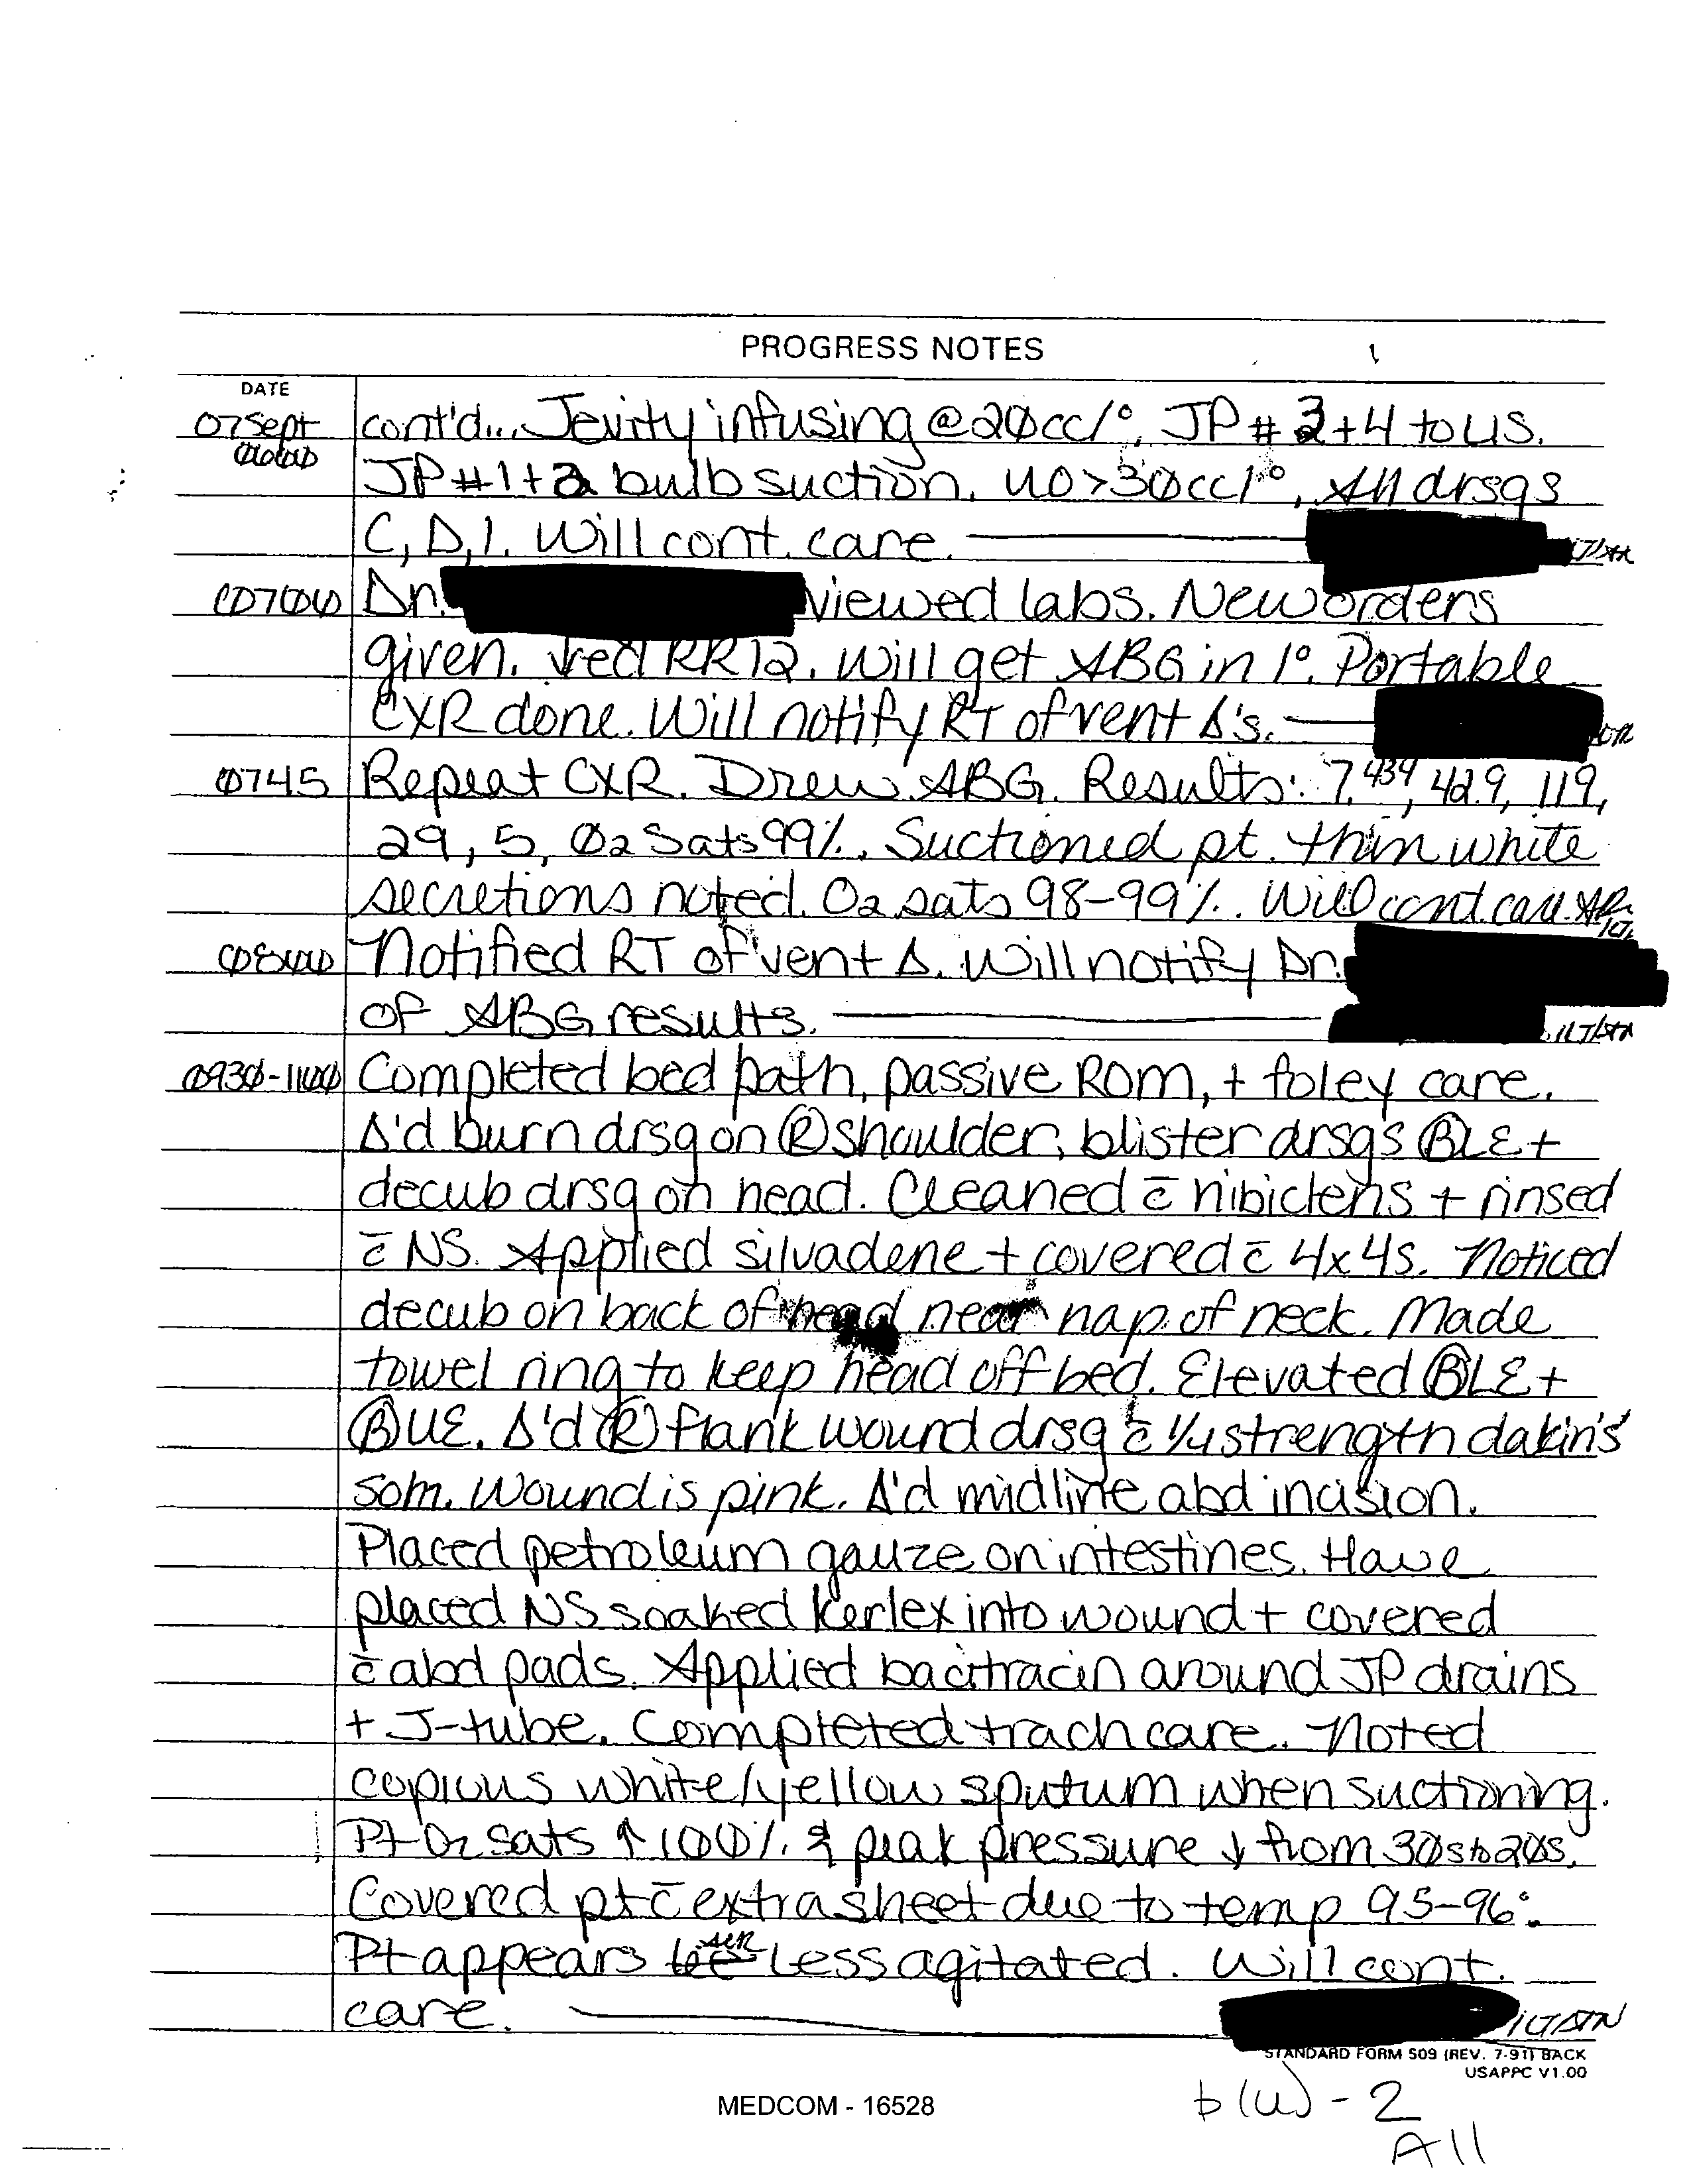 PROGRESS NOTES
DATE
07Sept cont'd... Jevity infusing @ 20cc/°. JP # 3+4 to LIS.
0600 JP #1+2 bulb suction. UO >30cc/°, All drsgs
C, D, I. Will cont. care.
0700 Dr. viewed labs. New orders
given. ↓ed RR 12. Will get ABG in 1°. Portable
CXR done. Will notify RT of vent Δ's.
0745 Repeat CXR. Drew ABG. Results: 7.434, 42.9, 119,
29, 5, O2 Sats 99%. Suctioned pt. thin white
secretions noted. O2 sats 98-99%. Will cont care.
0800 Notified RT of vent Δ. Will notify Dr.
of ABG results. 1LT/AN
0930-1100 Completed bed bath, passive ROM, + foley care.
Δ'd burn drsg on Ⓡ shoulder, blister drsgs ⒷLE +
decub drsg on head. Cleaned c̄ hibiclens + rinsed
c̄ NS. Applied silvadene + covered c̄ 4x4s. Noticed
decub on back of head near nap of neck. Made
towel ring to keep head off bed. Elevated ⒷLE +
ⒷUE. Δ'd Ⓡ flank wound drsg c̄ 1/4 strength dakin's
soln. Wound is pink. Δ'd midline abd incision.
Placed petroleum gauze on intestines. Have
placed NS soaked Kerlex into wound + covered
c̄ abd pads. Applied bacitracin around JP drains
+ J-tube. Completed trach care. Noted
copious white/yellow sputum when suctioning.
Pt O2 sats ↑ 100% & peak pressure ↓ from 30s to 20s.
Covered pt c̄ extra sheet due to temp 95-96°.
Pt appears less agitated. Will cont.
care. 1LT/AN
STANDARD FORM 509 (REV. 7-91) BACK
USAPPC V1.00
MEDCOM - 16528
b(6) - 2
All